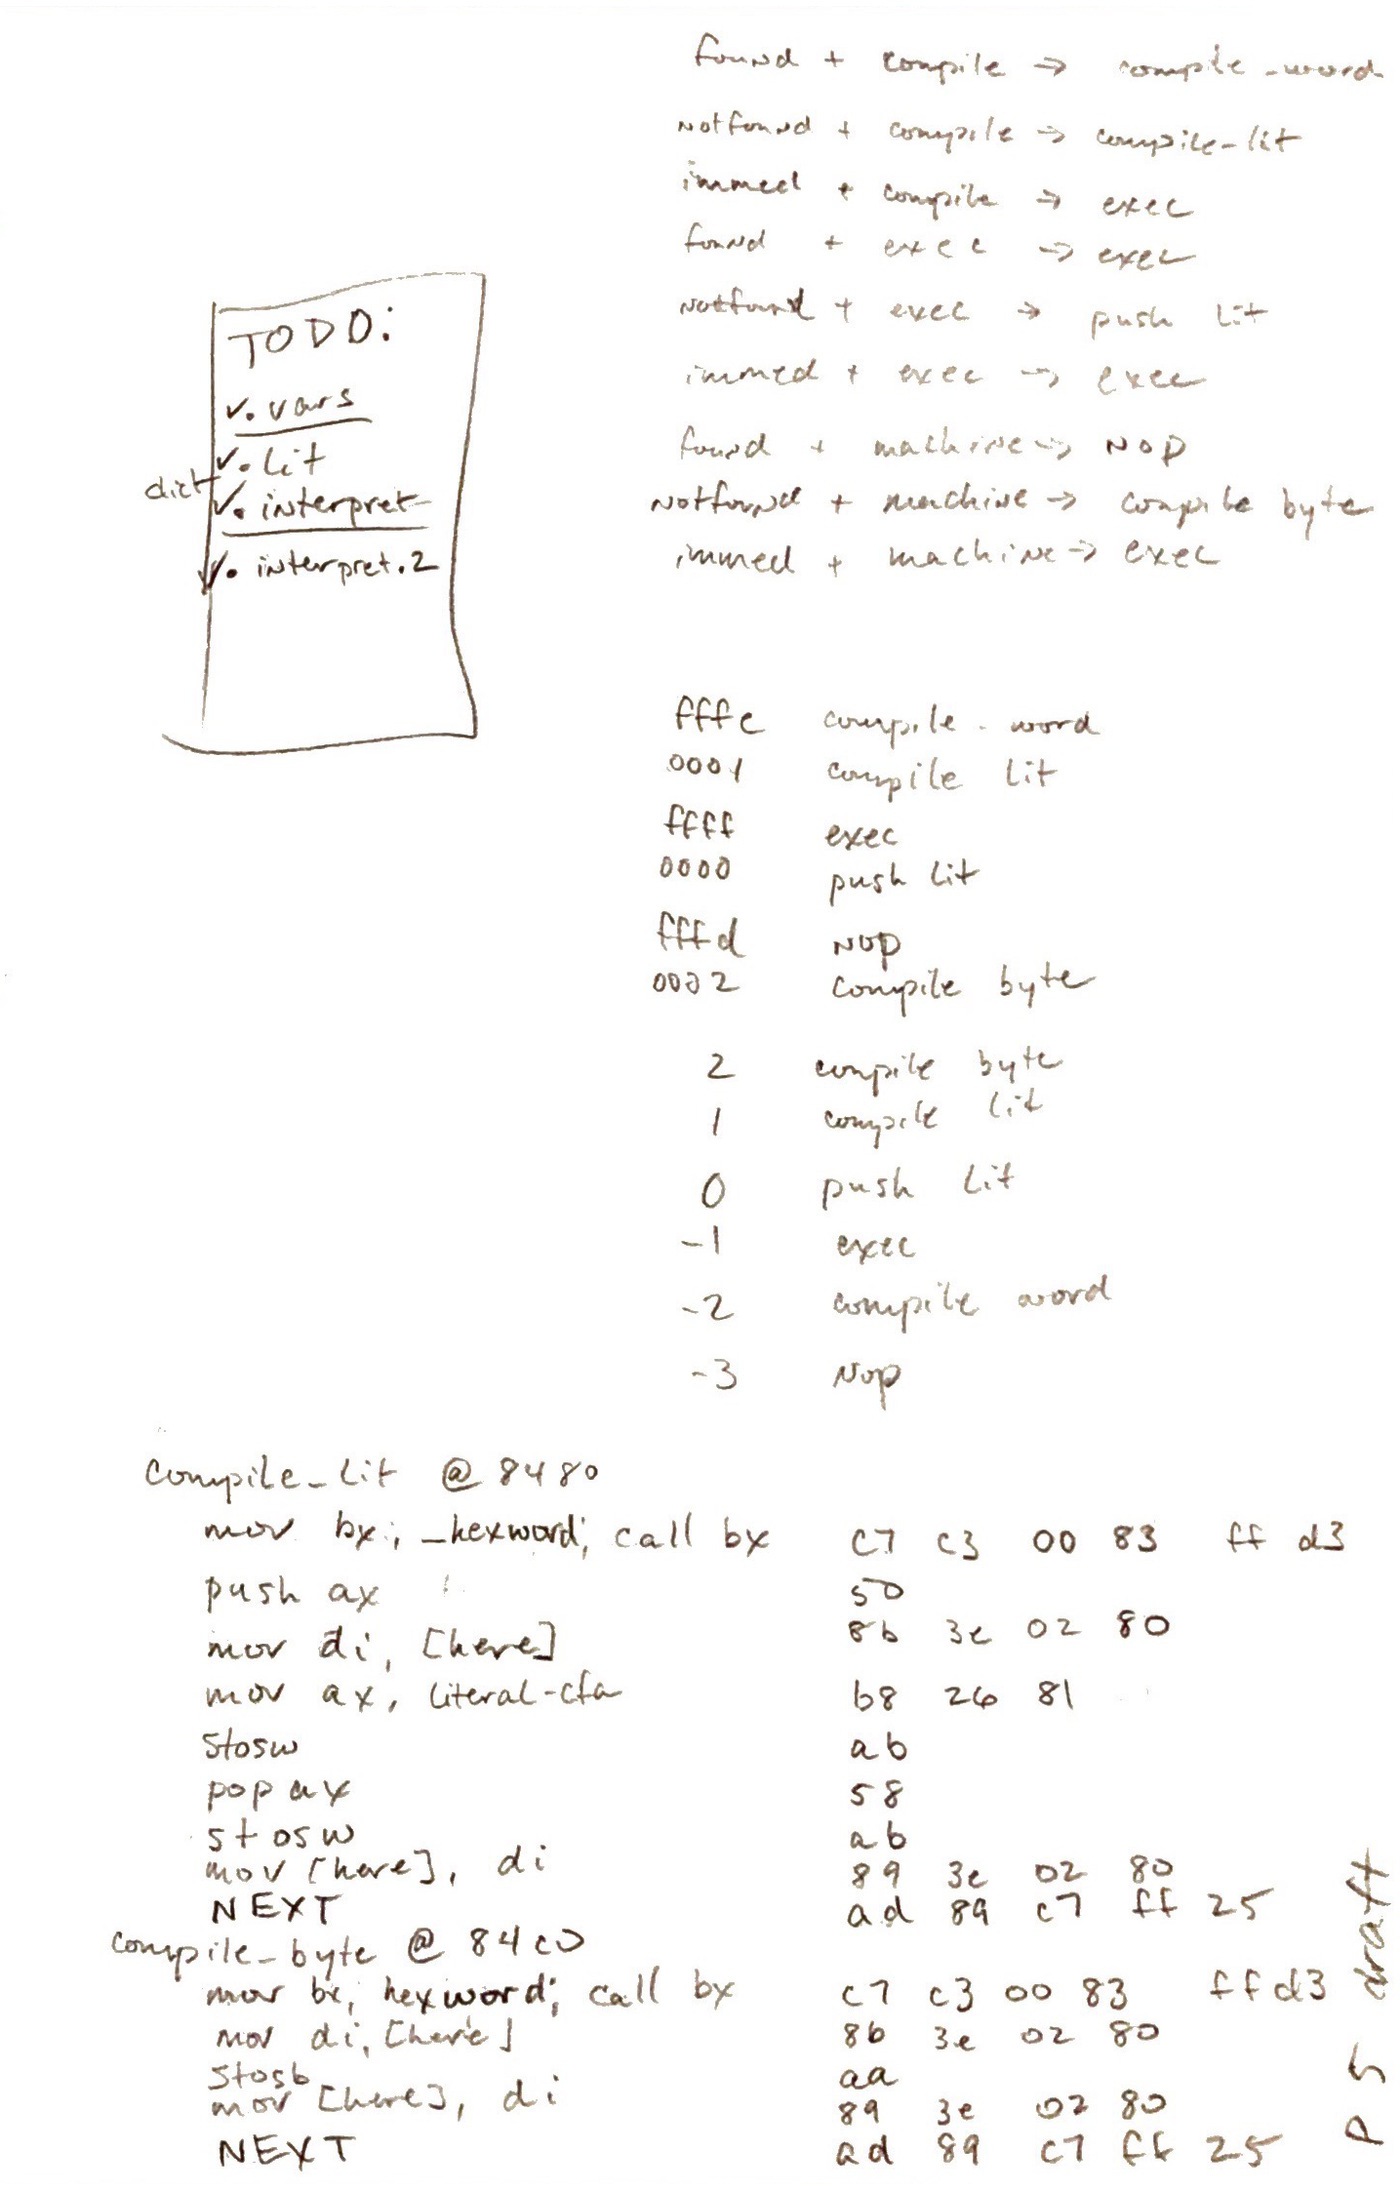 found + compile → compile_word
notfound + compile → compile-lit
immed + compile → exec
found + exec → exec
notfound + exec → push lit
immed + exec → exec
found + machine → NOP
notfound + machine → compile byte
immed + machine → exec
TODO:
✓. vars
✓. lit
dict
✓. interpret
✓. interpret.2
fffe compile-word
0001 compile lit
ffff exec
0000 push lit
fffd NOP
0002 compile byte
2 compile byte
1 compile lit
0 push lit
-1 exec
-2 compile word
-3 NOP
compile_lit @ 8480
mov bx, _hexword; call bx c7 c3 00 83 ff d3
push ax 50
mov di, [here] 8b 3e 02 80
mov ax, literal-cfa b8 26 81
stosw ab
pop ax 58
stosw ab
mov [here], di 89 3e 02 80
NEXT ad 89 c7 ff 25
compile_byte @ 84c0
mov bx, hexword; call bx c7 c3 00 83 ff d3
mov di, [here] 8b 3e 02 80
stosb aa
mov [here], di 89 3e 02 80
NEXT ad 89 c7 ff 25
draft